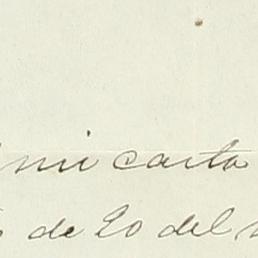 mi carta
de 20 del